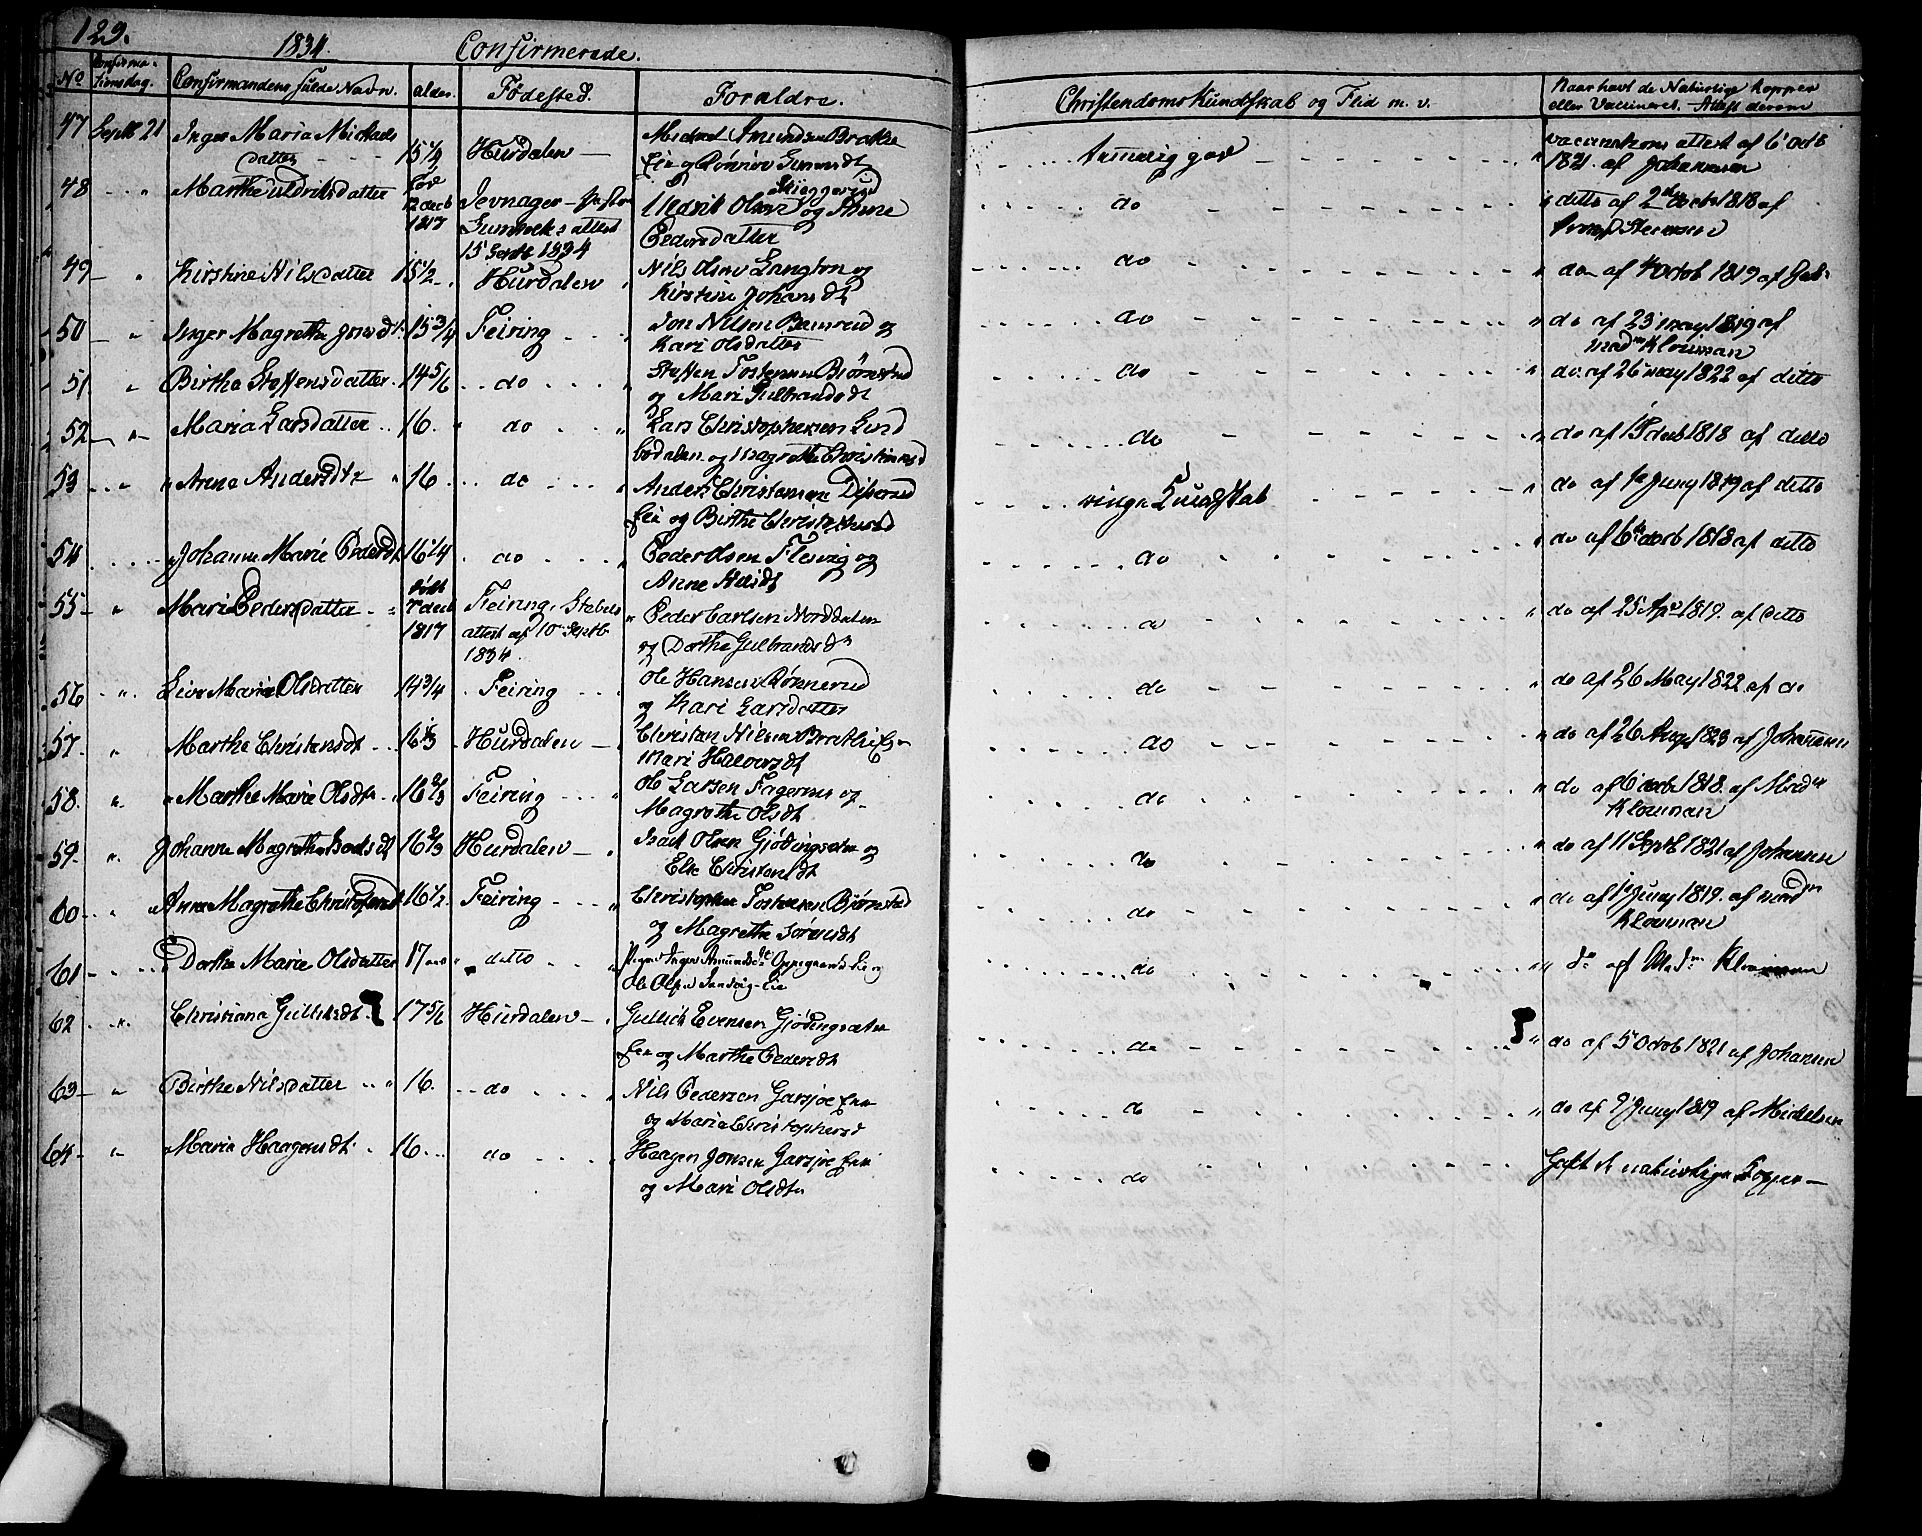 129.
1834. Confirmerede.
No Confirmationsdag. Confirmandens fulde Navn. alder. Fødested. Forældre. Christendoms Kundskab og Flid m. v. Naar havt de Naturlige Kopper
eller Vaccineret. - Attest derom
47 Septb 21 Inger Maria Michels
datter 15 1/2 Hurdalen - Michael Amundsen
Eie og Gunnersdt god - vaccinations attest af 6 Octb
1821. af Johannesen
48 " Marthe Uldriksdatter
12 decb
1817 Jevnager -
attest
15 Septb 1834 Uldrik Olsen og Anne
Pedersdatter do ditto af 2den octb 1818 af
49 - " Kirstine Nilsdatter 15 1/2 - Hurdalen Nils Olsen Langton og
Kirstine Johansdt do " do - af 4 Octob 1819 af
50 " Inger Magrethe Jonsdt. 15 3/4 Feiring Jon Nilsen og
Kari Olsdatter do " do af 23 may 1819 af
madm Klouman
51 " Birthe Steffensdatter 14 5/6 do Steffen Tostensen Bjørnstad
og Mari Gulbrandsdt do " do. af 26 may 1822 af ditto
52 " Maria Larsdatter 16. " do Lars Christophersen Lund
bedalen og Magrethe do " do af 15 decb 1818 af ditto
53 " Anne Andersdtr 16 do Anders Christensen
Eie og Birthe ringe Kundskab " do af 1 Juny 1819 af ditto
54 Johanne Marie Pedersdt 16 1/4 do Peder Olsen og
Anne do " do af 6te octb 1818 af ditto
55 - " Mari Pedersdatter født
7 decb
1817 Feiring. Stabels
attest af 10 Septb
1834. Peder Carlsen Norddalen
og Dorthe Gulbrandsdr do " do af 25 Apr 1819. af ditto
56 " Live Maria Olsdatter 14 3/4 Feiring Ole Hansen Rønnerud
og Kari Larsdatter do " do af 26 May 1822 af do
57. " Marthe Christensdt 16 1/3 Hurdalen - Christen Nilsen
Mari Halvorsdt do " do af 26 Aug 1823 af Johannesen
58. " Marthe Marie Olsdtr 16 2/3 Feiring Ole Larsen Fagernes og
Magrethe Olsdt do " do af 6 octb 1818. af Madm
Klouman
59. " Johanne Magrethe Isachsdt 16 2/3 Hurdalen - Isach Olsen Gjødingsæter og
Else Christensdt do " do af 11 Septb 1821 af Johannsen
60 - " Anne Magrethe Christophersdt 16 1/2. Feiring Christopher Tostensen Bjørnstad
og Magrethe Sørensdt do " do af 1 Juny 1819. af madm
Klouman
61 Dorthe Marie Olsdatter 17 ditto Pigen Inger Amundsdt Oppegaards Eie og
Ole Olsen Sandvig-Eie do " do af Madm Klouman
62 " Christiana Gulliksdt 17 5/6 Hurdalen - Gullich Evensen Gjødingsæter
Eie og Marthe Pedersdt do " do af 5 Octob 1821 af Johansen
63 - " Birthe Nilsdatter 16. do Nils Pedersen Garsjøe Eie
og Maria Christophersd do " do af 9 Juny 1819 af Mickelsen
64 - " Maria Haagensdt 16 do Haagen Jonsen Garsjøe Eie
og Mari Olsdtr do Haft de naturlige Kopper -